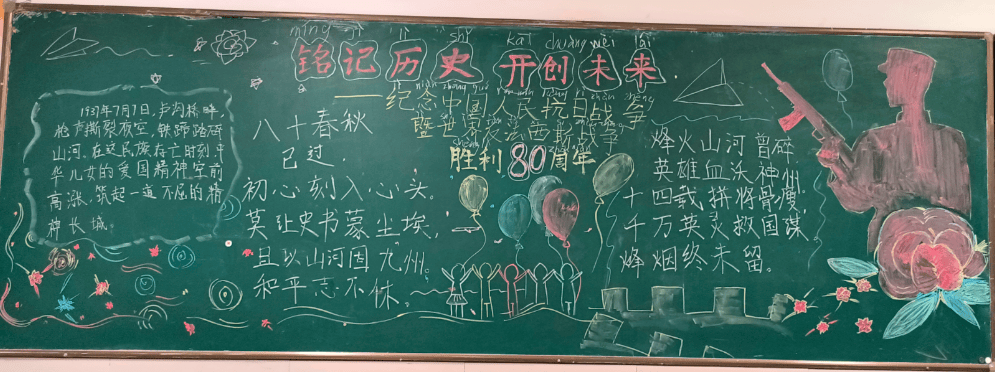 铭记历史 开创未来
——纪念中国人民抗日战争
暨世界反法西斯战争
胜利80周年
1937年7月7日,卢沟桥畔,
枪声撕裂夜空,铁蹄踏碎
山河。在这民族存亡时刻,中
华儿女的爱国精神空前
高涨,筑起一道不屈的精
神长城。
八十春秋
已过,
初心刻入心头。
莫让史书蒙尘埃,
且以山河因九州。
和平志不休。
烽火山河曾碎,
英雄血沃神州。
十四载拼将骨瘦,
千万英灵救国谋,
烽烟终未留。